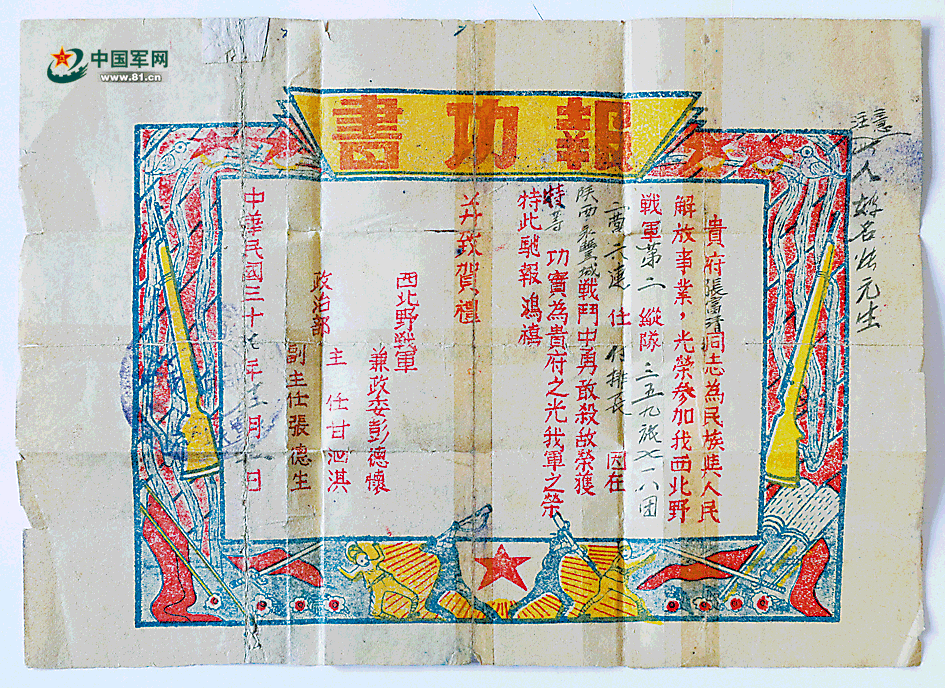 中国军网
www.81.cn
報功書
注意
貴府張富清同志為民族與人民
解放事業,光榮參加我西北野
戰軍第二縱隊三五九旅七一八团
二营六連任付排長因在
陝西永豐城戰鬥中勇敢殺敌榮獲
特等功實為貴府之光我軍之榮
特此馳報鴻禧
並致賀禮
西北野戰軍
兼政委彭德懷
政治部
主任甘泗淇
副主任張德生
中華民國三十七年 月 日